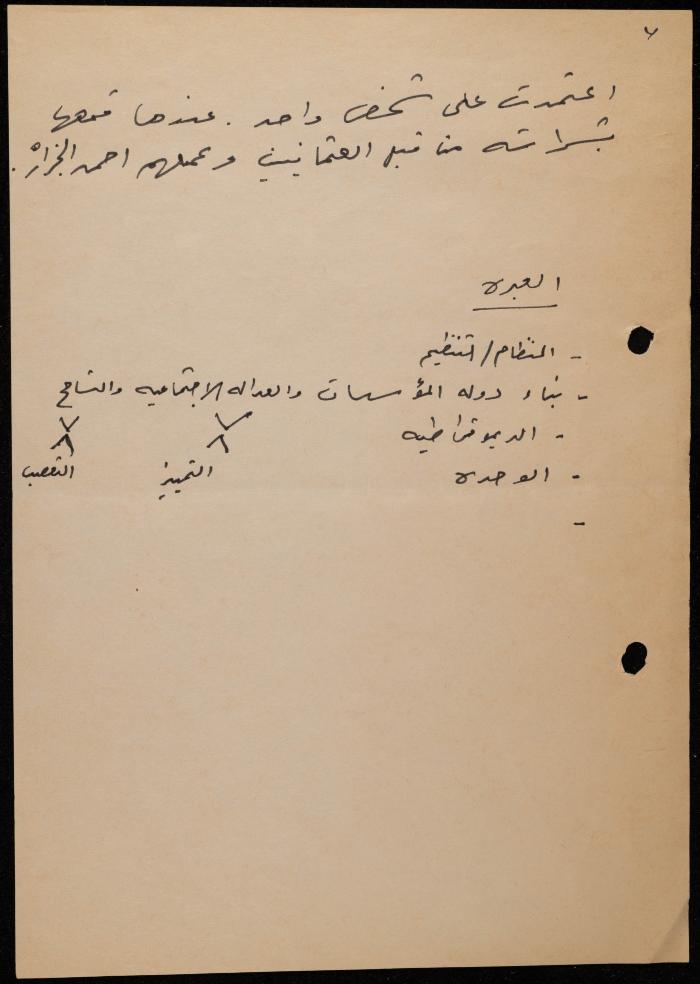 ٧
اعتمدت على شخص واحد. عندما قمعها
بشراسته من قبل العثمانيين وعميلهم احمد الجزار.
العبره
- النظام/التنظيم
- بناء دوله المؤسسات والعداله الاجتماعيه والتسامح
- الديموقراطيه
- الوحده
التمييز
التعصب
-